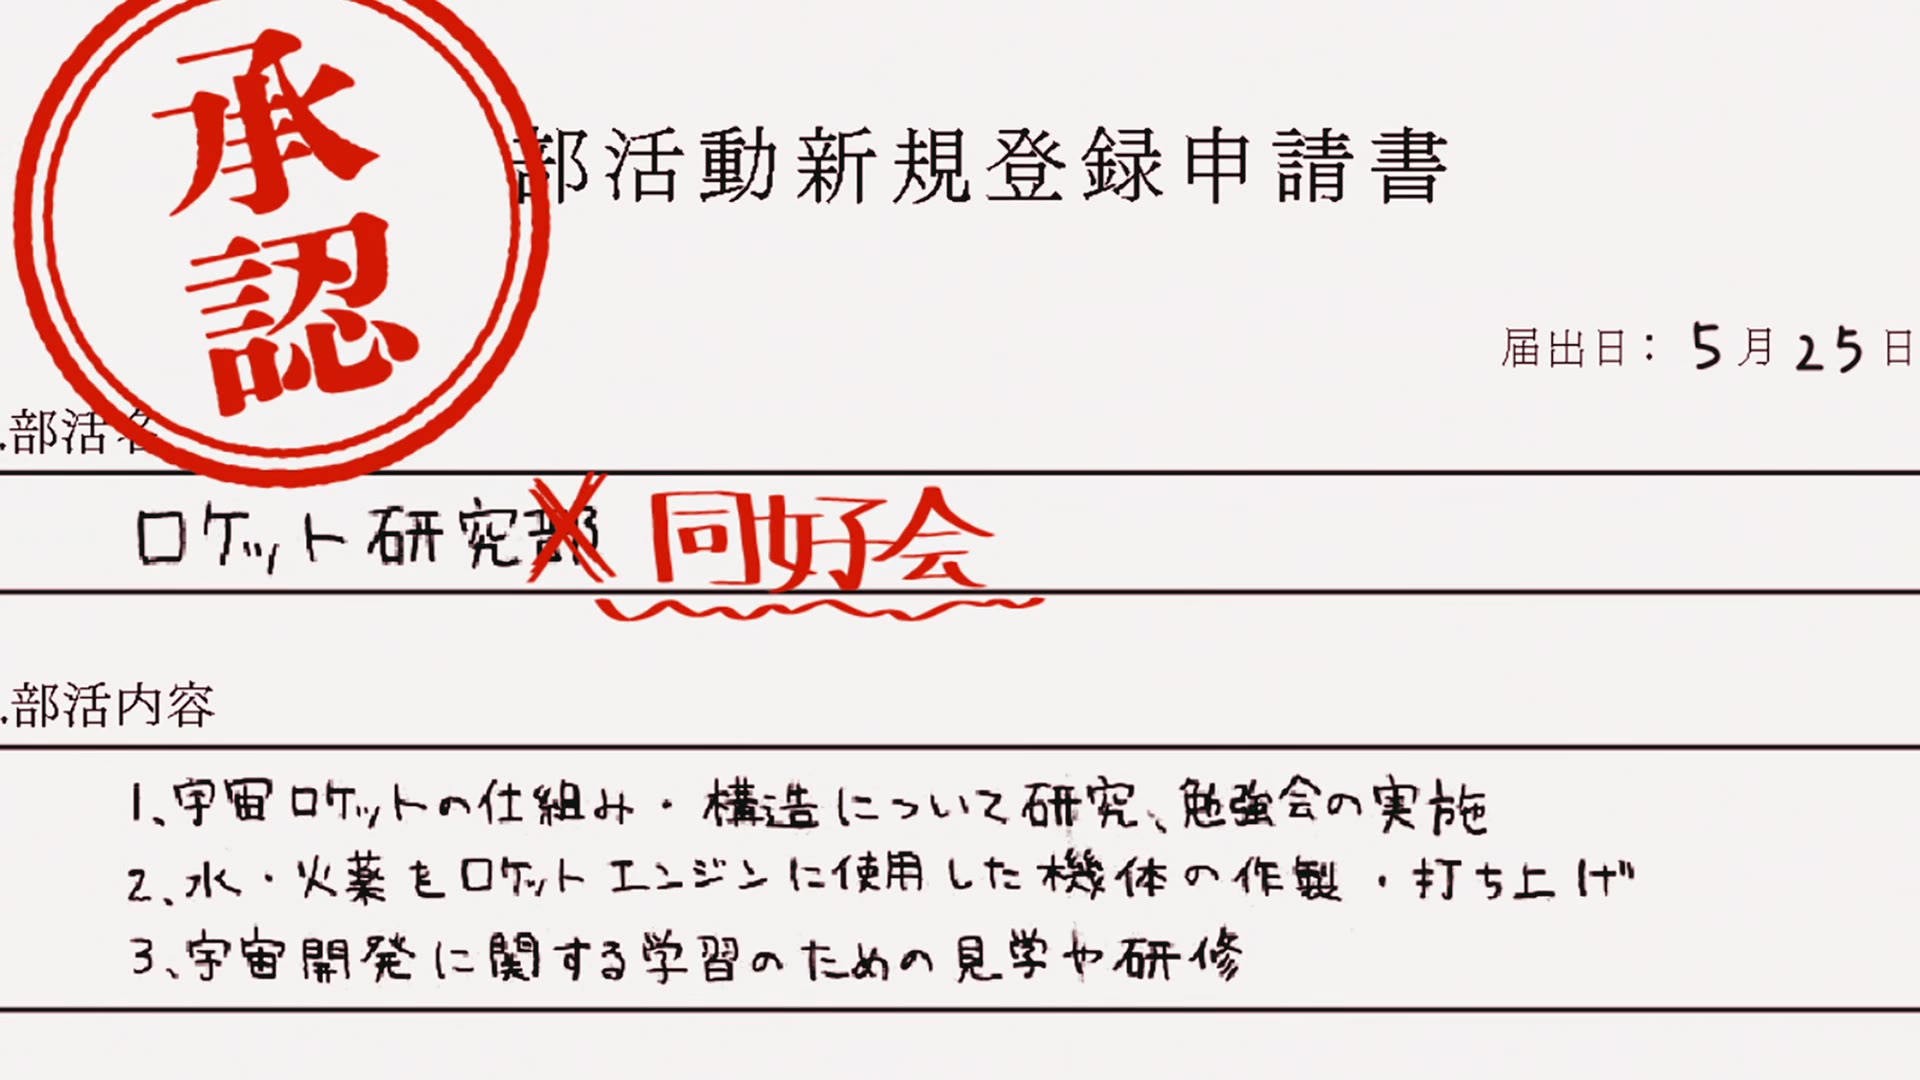 承認
部活動新規登録申請書
届出日：5月25日
.部活名
ロケット研究部 同好会
.部活内容
1、宇宙ロケットの仕組み・構造について研究、勉強会の実施
2、水・火薬をロケットエンジンに使用した機体の作製・打ち上げ
3、宇宙開発に関する学習のための見学や研修